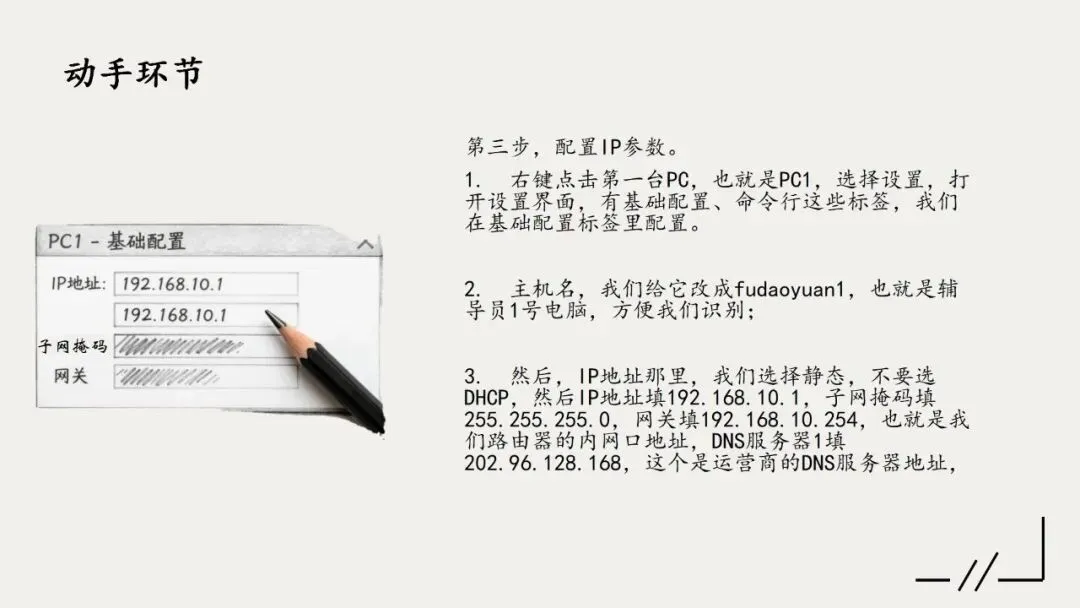 动手环节
PC1 - 基础配置
IP地址: 192.168.10.1
192.168.10.1
子网掩码
网关
第三步，配置IP参数。
1. 右键点击第一台PC，也就是PC1，选择设置，打
开设置界面，有基础配置、命令行这些标签，我们
在基础配置标签里配置。
2. 主机名，我们给它改成fudaoyuan1，也就是辅
导员1号电脑，方便我们识别；
3. 然后，IP地址那里，我们选择静态，不要选
DHCP，然后IP地址填192.168.10.1，子网掩码填
255.255.255.0，网关填192.168.10.254，也就是我
们路由器的内网口地址，DNS服务器1填
202.96.128.168，这个是运营商的DNS服务器地址，